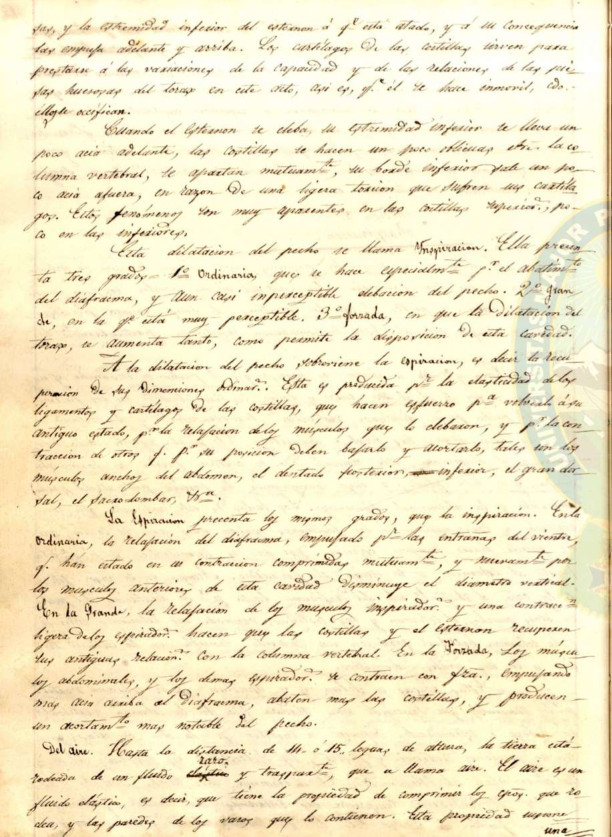 sas, y la estremidad inferior del esternon á qe. está atado, y á su consequencia
las empuja adelante y arriba. Los cartilagos de las costillas sirven para
prestarse á las variaciones de la capacidad y de las relaciones de las pie-
sas huesosas del torax en este acto, asi es, qe. él se hace inmovil, cdo.
ellos se occifican.
Cuando el esternon se eleba, su estremidad inferior se lleva un
poco acia adelante, las costillas se hacen un poco oblicuas sre. la co
lumna vertebral, se apartan mutuamte., su borde inferior sale un po-
co acia afuera, en razon de una ligera torsion que sufren sus cartila
gos. Estos fenómenos son muy aparentes en las costillas superiors., po-
co en las inferiores.
Esta dilatacion del pecho se llama Inspiracion. Ella presen-
ta tres grados= 1º Ordinaria, que se hace especialmte. pr. el abatimto.
del diafracma, y aun casi inperceptible elebacion del pecho. 2º Gran
de, en la qe. está muy perceptible. 3º forzada, en que la dilatacion del
torax, se aumenta tanto, como permite la disposicion de esta cavidad.
A la dilatacion del pecho sobreviene la espiracion, es decir la recu
peracion de sus dimenciones ordinars. Esta es producida pr. la elasticidad de los
ligamentos y cartilagos de las costillas, que hacen esfuerzo pa. volver á su
antiguo estado, pr. la relajacion de los musculos que lo elebaron, y pr. la con
traccion de otros q. pr. su posicion deben bajarlo y acortarlo, tales son los
musculos anchos del abdomen, el dentado posterior, inferior, el gran dor
sal, el sacro lombar, &a.
La Espiracion presenta los mismos grados, que la inspiracion. En la
ordinaria, la relajacion del diafracma, empujado pr. las entrañas del vientre,
q. han estado en su contracion comprimidas mutuamte., y nuevamte. por
los musculos anteriores de esta cavidad disminuye el diametro vertical.
En la Grande, la relajacion de los musculos inspirados. y una contracn.
ligera de los espirados. hacen que las costillas y el esternon recuperen
sus antiguas relacions. con la columna vertebral. En la Forzada, Los muscu
los abdominales, y los demas espirados. se contraen con fza., empujando
mas acia arriba el diafracma, abaten mas las costillas, y producen
un acortamto. mas notable del pecho.
Del aire. Hasta la distancia de 14. ó 15. leguas de altura, la tierra está
raro.
rodeada de un fluido elástico y trasparte., que se llama aire. El aire es un
fluido elástico, es decir, que tiene la propiedad de comprimir los cpos. que ro
dea, y las paredes de los vasos que lo contienen. Esta propiedad supone
una